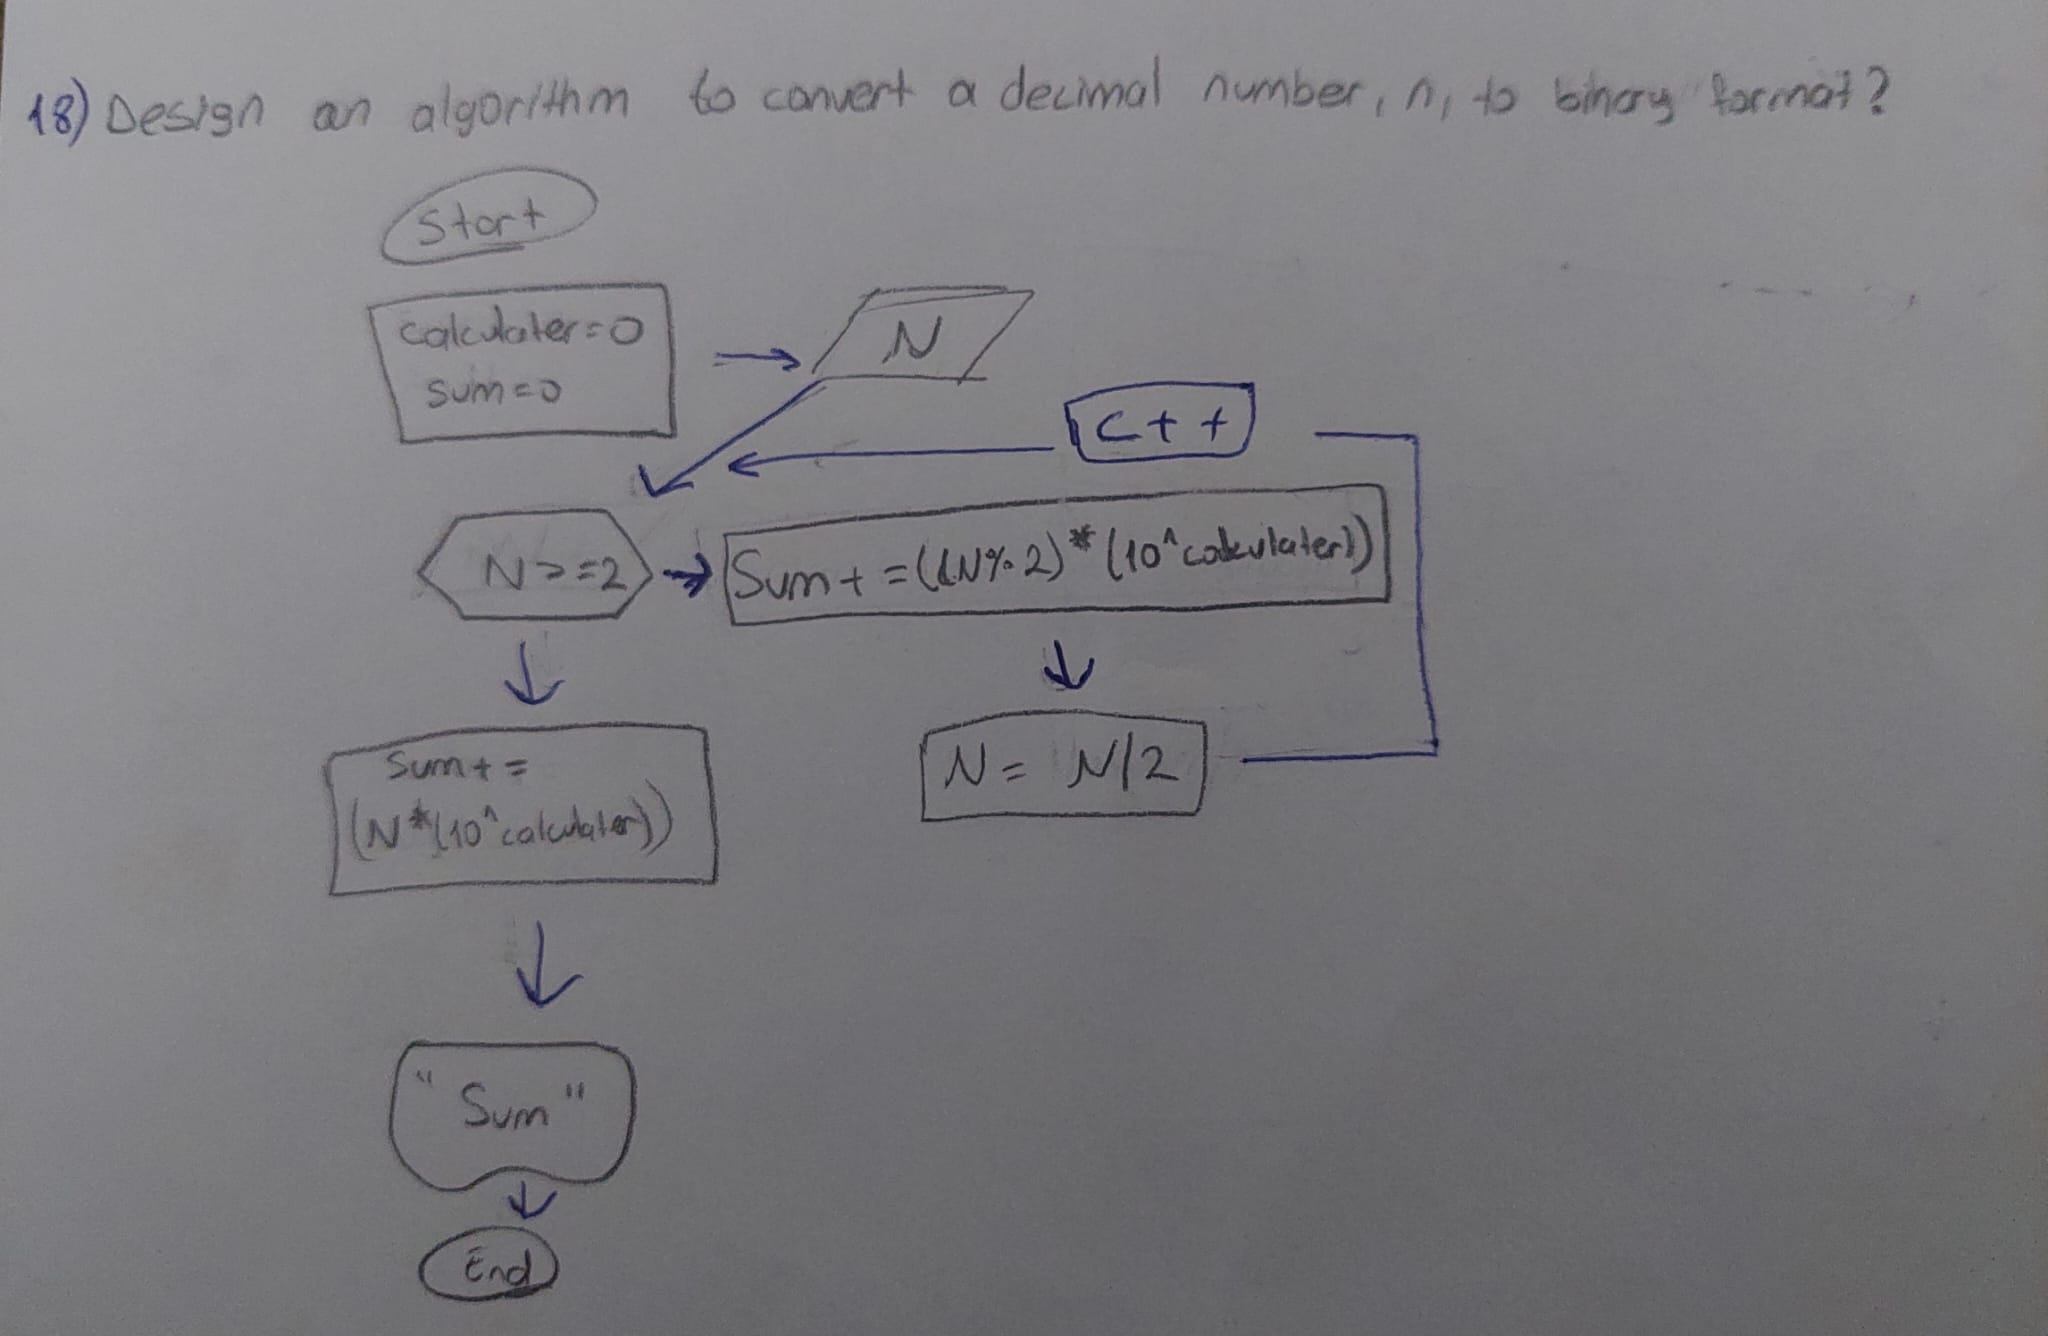 18) Design an algorithm to convert a decimal number, n, to binary format?
Start
calculater=0
sum=0
N
C++
N>=2
Sum+=((N%2)*(10^calculater))
Sum+=
(N*(10^calculater))
N= N/2
"Sum"
End